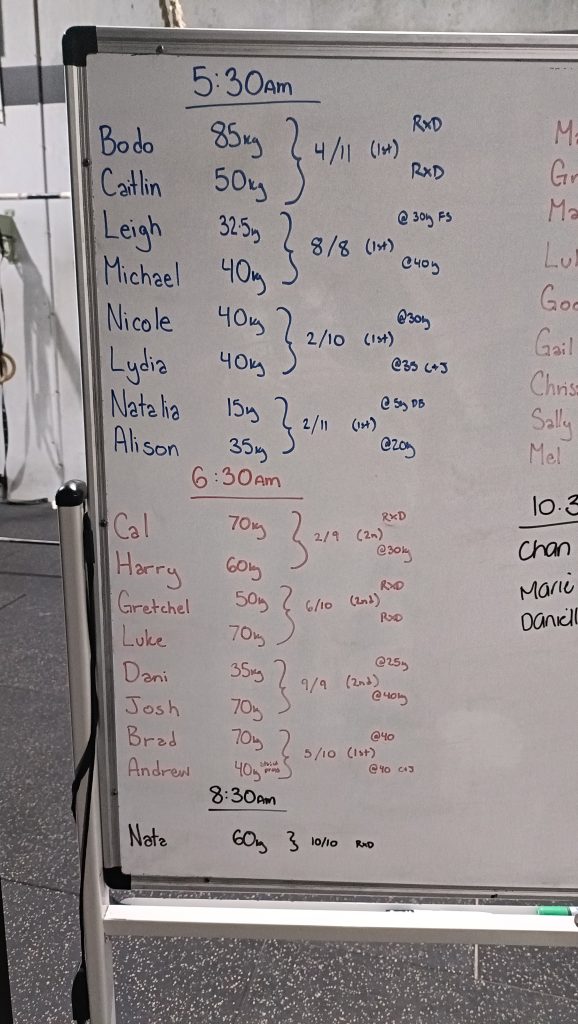 5:30AM
RXD
Bodo 85kg } 4/11 (1st)
Caitlin 50kg RXD
Leigh 32.5kg @ 30kg FS
} 8/8 (1st)
Michael 40kg @40kg
Nicole 40kg @30kg
} 2/10 (1st)
Lydia 40kg @35 C+J
Natalia 15kg @ 5kg DB
} 2/11 (1st)
Alison 35kg @20kg
6:30AM
Cal 70kg RXD
} 2/9 (2n)
Harry 60kg @30kg
Gretchel 50kg RXD
} 6/10 (2nd)
Luke 70kg RXD
Dani 35kg @25kg
} 9/9 (2nd)
Josh 70kg @40kg
Brad 70kg @40
} 5/10 (1st)
Andrew 40kg @40 C+J
8:30AM
Nate 60kg } 10/10 RXD
Ma
Gr
Ma
Lu
Goo
Gail
Chris
Sally
Mel
10.3
Chan
Marie
Daniell